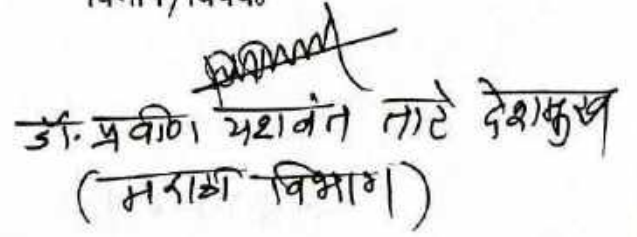 डॉ. प्रवीण यशवंत ताटे देशमुख
(मराठी विभाग)